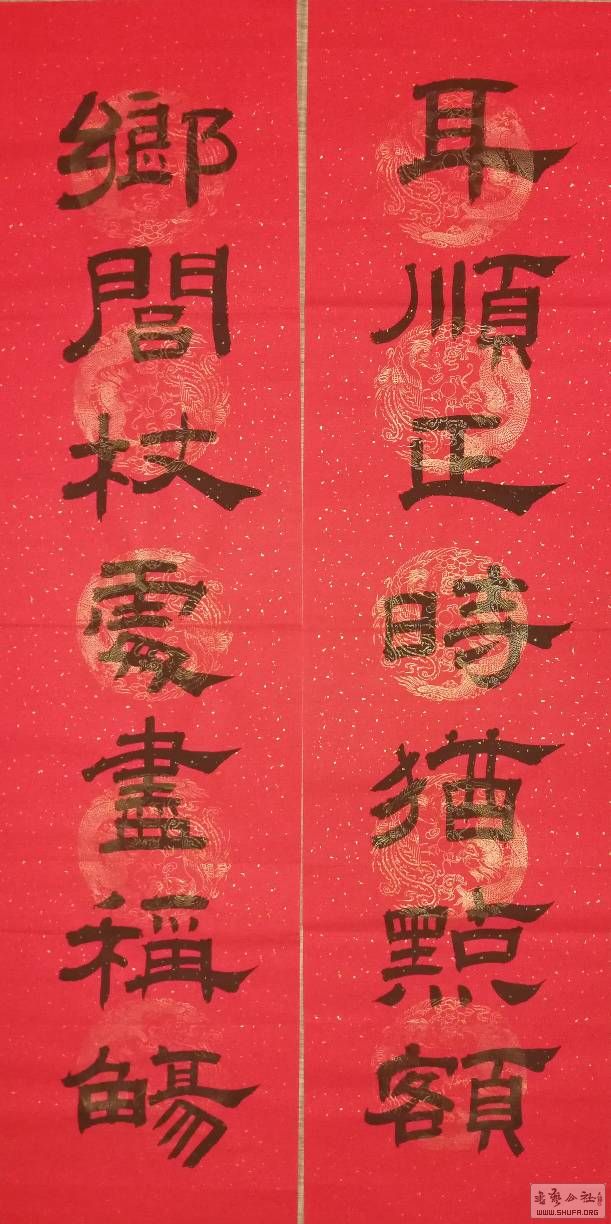 耳順正時猶點額
鄉閭杖處盡稱觴
WWW.SHUFA.ORG